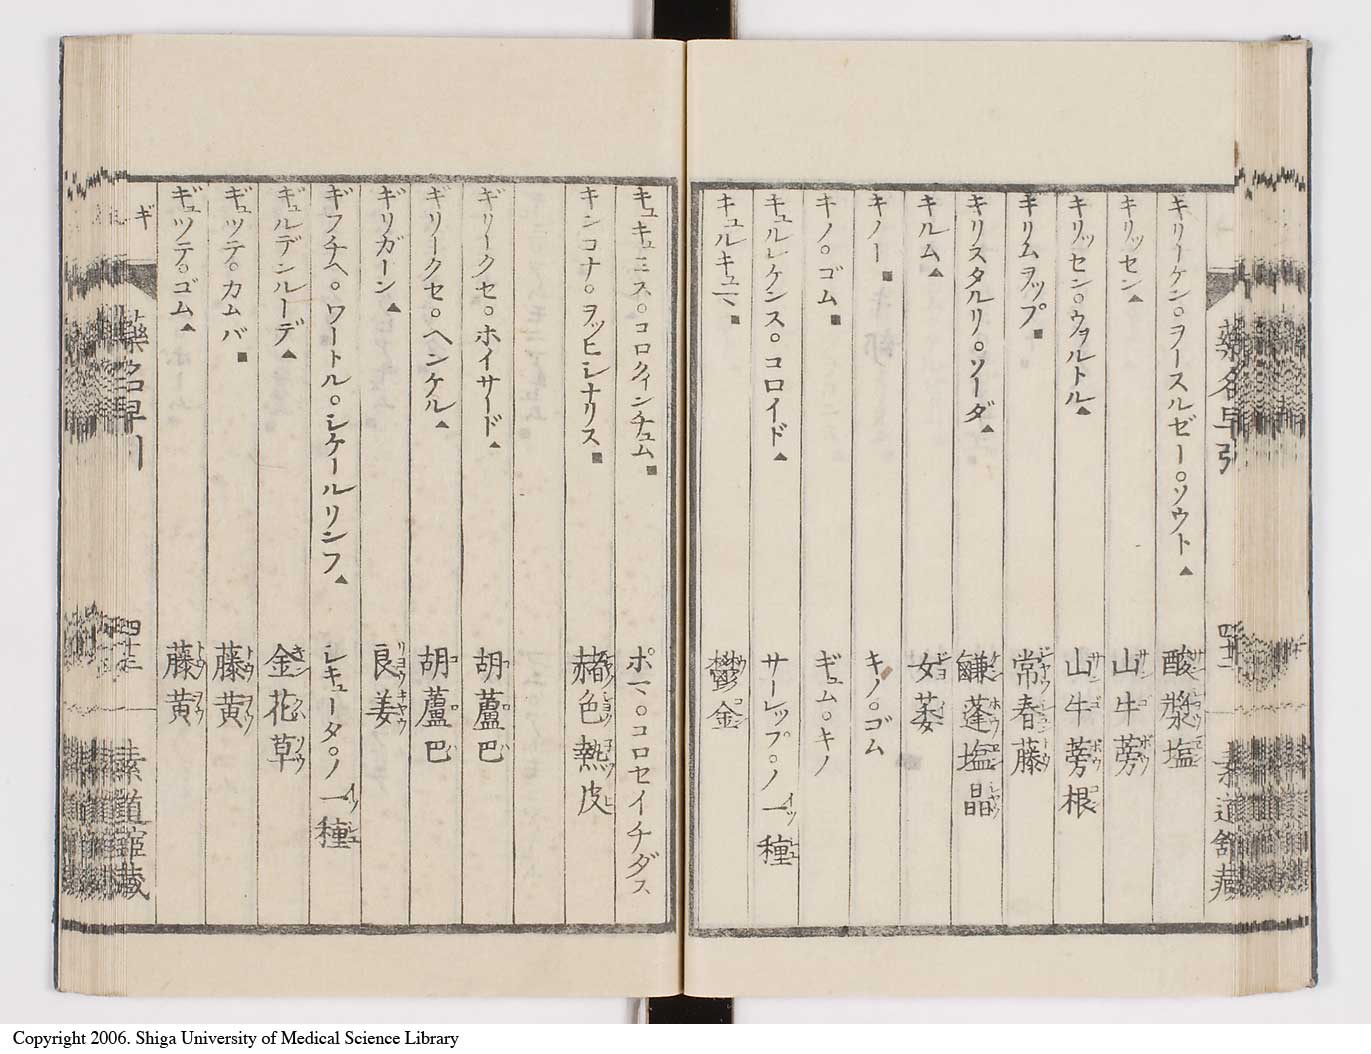 藥名早引
四十二
キリーケン。ヲースルゼー。ソウト▲ 酸漿塩
キリッセン▲ 山牛蒡
キリッセン。ウヲルトル▲ 山牛蒡根
キリムヲップ■ 常春藤
キリスタルリ。ソーダ▲ 鹻蓬塩晶
キルム▲ 女萎
キノー■ キノ。ゴム
キノ。ゴム■ ギュム。キノ
キュルレケンス。コロイド▲ サーレップ。ノ一種
鬱金
キュキュミス。コロクィンチュム■ コロセイチダス
キンコナ。ヲッヒシナリス■ 赭色熱皮
ギリークセ。ホイサード▲ 胡蘆巴
ギリークセ。ヘンケル▲ 胡蘆巴
ギリガーン▲ 良姜
ギフチヘ。ワートル。シケールリンフ▲ シキュータ。ノ一種
ギュルデンルーデ▲ 金花草
ギュツテ。カムバ■ 藤黄
ギュツテ。ゴム▲ 藤黄
ギ
藥名早引
四十三
Copyright 2006. Shiga University of Medical Science Library